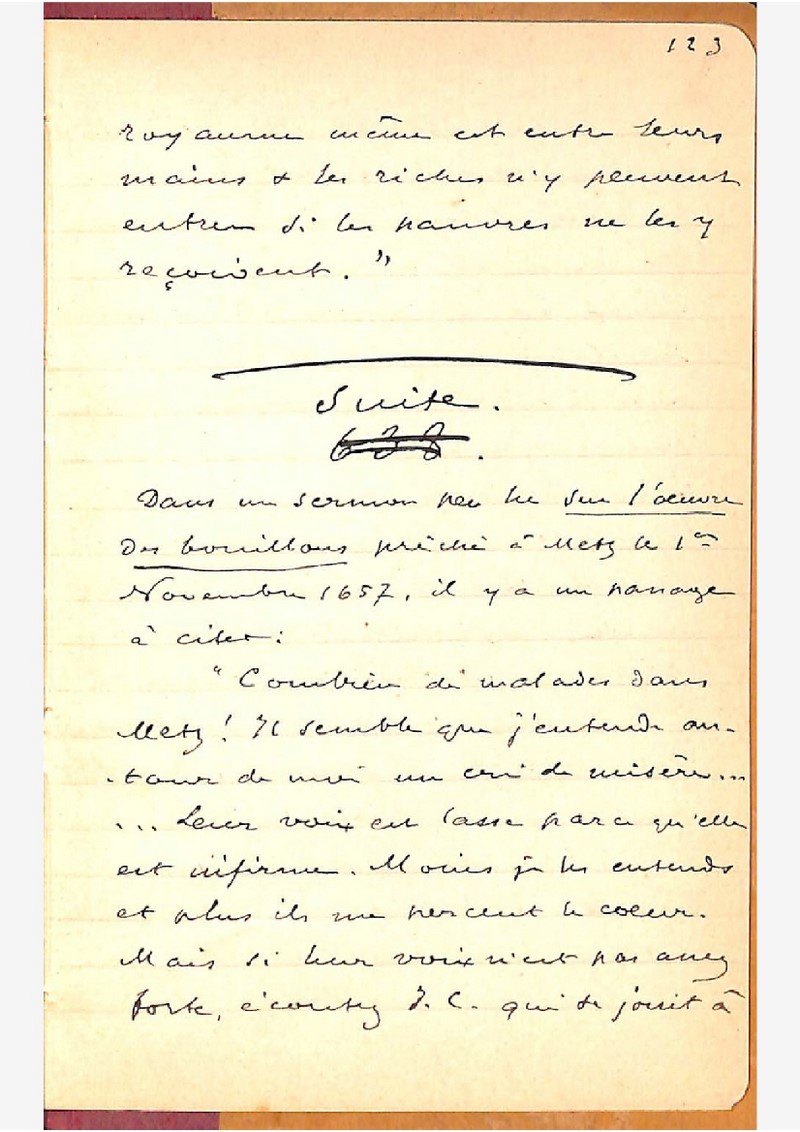 123
royaume même est entre leurs
mains & les riches n'y peuvent
entrer si les pauvres ne les y
reçoivent. "
Suite.
638.
Dans un sermon peu lu sur l'oeuvre
des bouillons prêché à Metz le 1er
Novembre 1657, il y a un passage
à citer:
" Combien de malades dans
Metz! Il semble que j'entends au-
-tour de moi un cri de misère...
... Leur voix est lasse parce qu'elle
est infirme. Moins je les entends
et plus ils me percent le coeur.
Mais si leur voix n'est pas assez
forte, écoutez J. C. qui se joint à